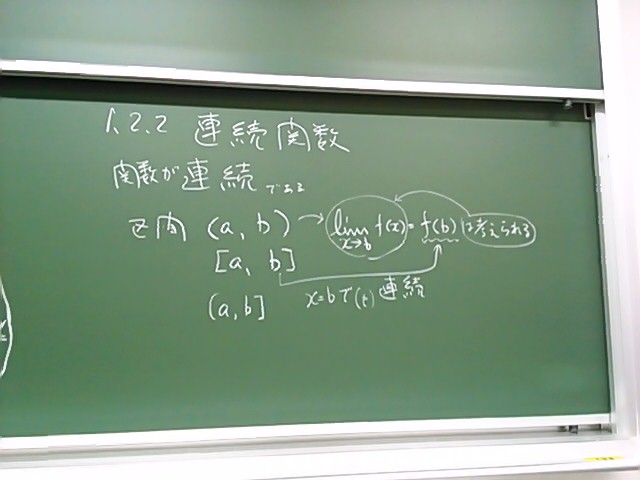 1.2.2 連続関数
関数が連続である
区間 (a, b) → lim x→b f(x) = f(b) は考えられる
[a, b]
(a, b] x=bで(は)連続